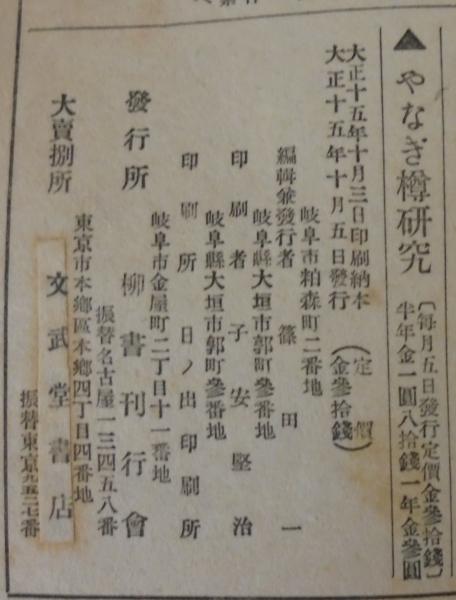 ▲やなぎ樽研究
〔每月五日發行定價金參拾錢〕
半年金一圓八拾錢一年金參圓
大正十五年十月三日印刷納本
大正十五年十月五日發行
（定價金參拾錢）
岐阜市粕森町二番地
編輯兼發行者 篠田一
岐阜縣大垣市郭町參番地
印刷者 子安堅治
岐阜縣大垣市郭町參番地
印刷所 日ノ出印刷所
岐阜市金屋町二丁目十一番地
發行所 柳書刊行會
振替名古屋一三四五八番
東京市本鄉區本鄉四丁目四番地
大賣捌所 文武堂書店
振替東京九五二七番